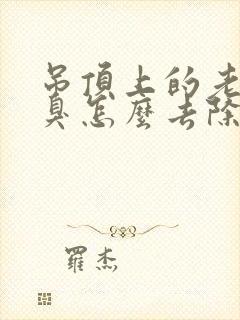 吊頂上的老
臭怎麼去除
羅杰